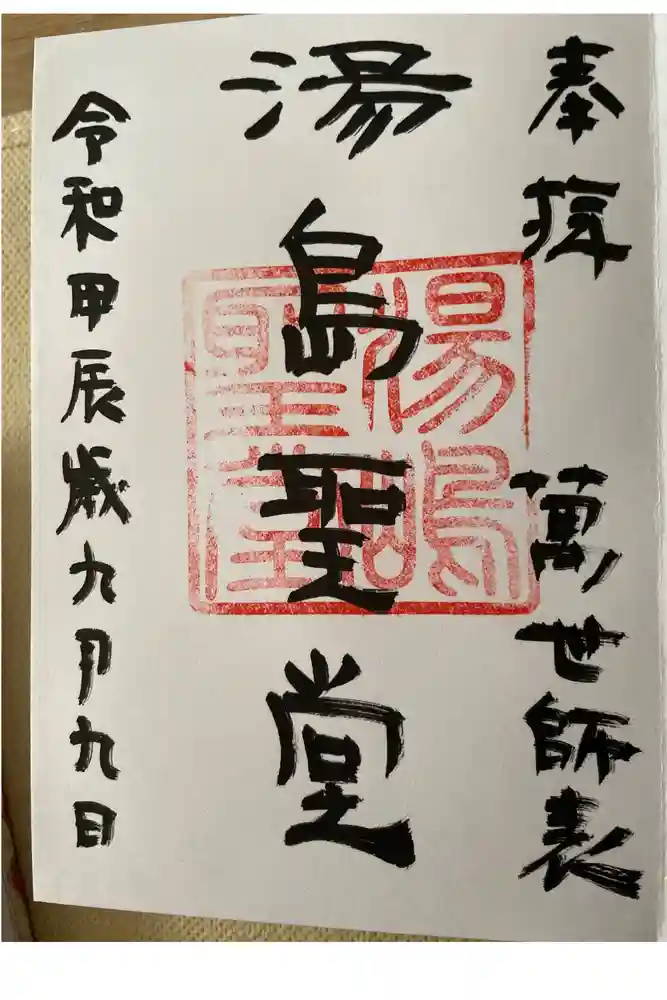 奉拝 萬世師表
湯島聖堂
湯嶋
聖堂
令和甲辰歳九月九日